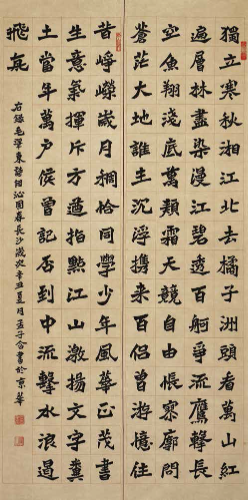 獨立寒秋湘江北去橘子洲頭看萬山
遍層林盡染漫江碧透百舸爭流鷹擊長
空魚翔淺底萬類霜天競自由悵寥廓問
蒼茫大地誰主沉浮携来百侣曾遊憶往
昔崢嶸歲月稠恰同學少年風華正茂書
生意氣揮斥方遒指點江山激揚文字糞
土當年萬户侯曾記否到中流擊水浪遏
飛舟
右錄毛澤東詩詞沁園春長沙歲次辛丑夏月孟子合書於京華